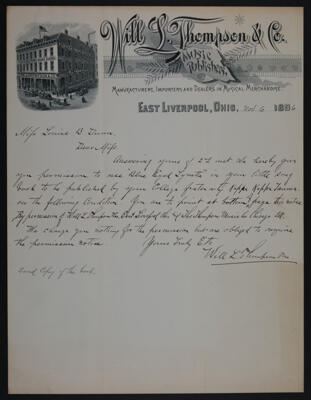 Will L. Thompson & Co.
Music Publishers.
Manufacturers, Importers and Dealers in Musical Merchandise.
East Liverpool, Ohio, Nov. 6 1886
Miss Louise B.
Dear Miss.
Answering yours of 2d inst We hereby give
you permission to use Blue Eyed in your little song
book to be published by your College fraternity Kappa Kappa Gamma
on the following Condition. You are to print at bottom of page this notice
By permission of Will L Thompson & Co. East Liverpool Ohio & The Thompson Music Co Chicago Ill.
We charge you nothing for the permission but are obliged to require
the permission notice. Yours Truly Etc
Will L Thompson & Co
Send Copy of the book.